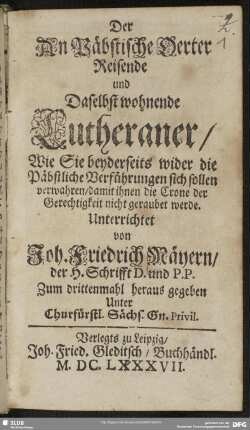 Der
An Päbstische Oerter
Reisende
und
Daselbst wohnende
Lutheraner/
Wie Sie beyderseits wider die
Päbstliche Verführungen sich sollen
verwahren/damit ihnen die Crone der
Gerechtigkeit nicht geraubet werde.
Unterrichtet
von
Joh. Friedrich Mäyern/
der H. Schrifft D. und P.P.
Zum drittenmahl heraus gegeben
Unter
Churfürstl. Sächs. Gn. Privil.
Verlegts zu Leipzig/
Joh. Fried. Gleditsch/ Buchhändl.
M. DC. LXXXVII.
SLUB
DFG